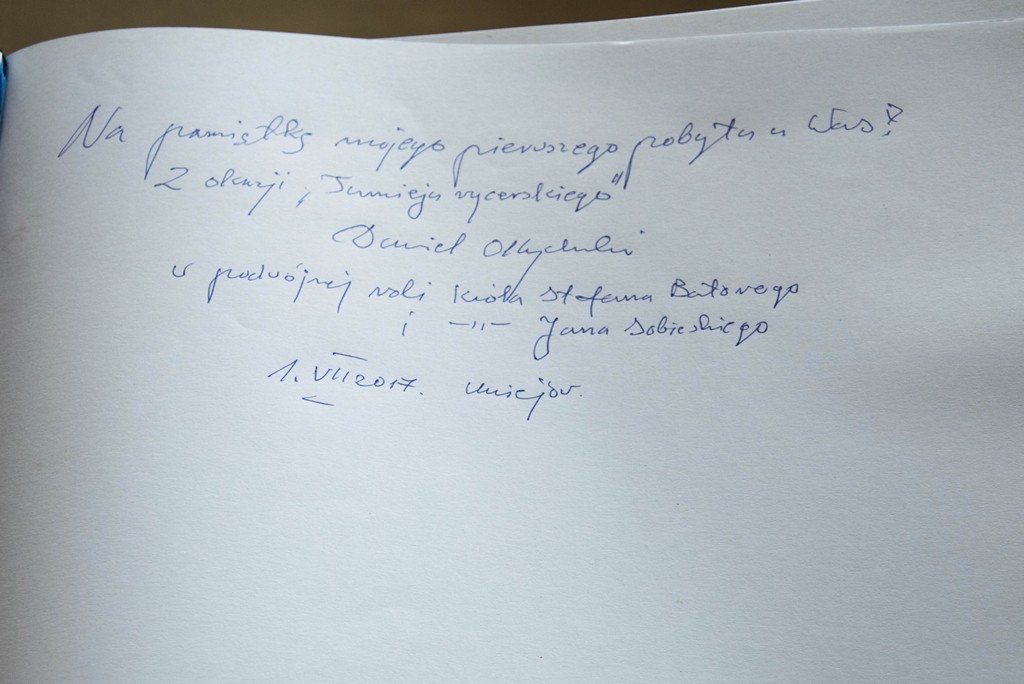 Na pamiątkę mojego pierwszego pobytu u Was!
Z okazji „Turnieju rycerskiego”
Daniel Olbrychski
w podwójnej roli Króla Stefana Batorego
i —"— Jana Sobieskiego
1. VII 2017. Uniejów.